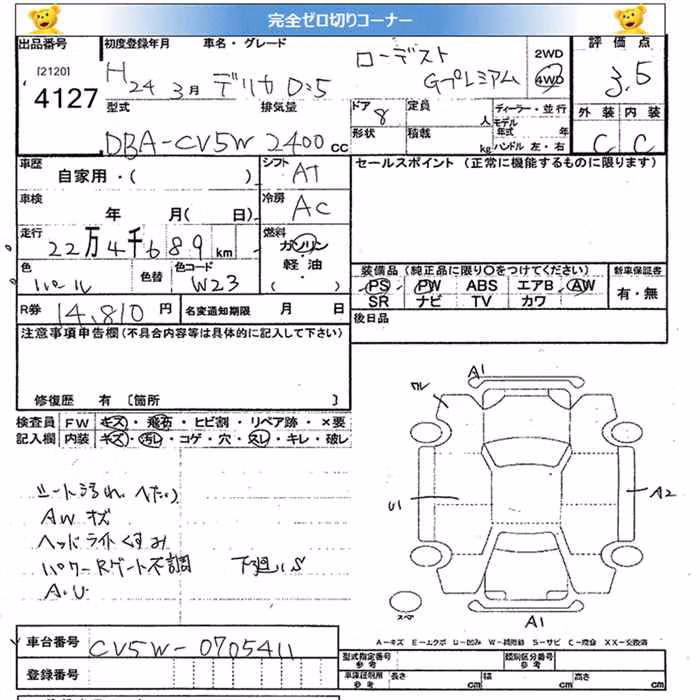 完全ゼロ切りコーナー
出品番号 初度登録年月 車名・グレード 評価点
[2120] 4127 H24 3月 デリカD:5 ローデスト Gプレミアム 2WD 4WD 3.5
型式 排気量 ドア 8 定員 人 ディーラー・並行 外装 内装
DBA-CV5W 2400 cc 形状 積載 kg モデル年式 年 ハンドル 左・右 C C
車歴 自家用・( ) シフト AT セールスポイント (正常に機能するものに限ります)
車検 年 月( 日) 冷房 AC
走行 22万4千689 km 燃料 ガソリン 軽・油 ( )
色 パール 色替 色コード W23
装備品 (純正品に限り○をつけてください) 新車保証書
PS PW ABS エアB AW 有・無
SR ナビ TV カワ
R券 14,810円 名変通知期限 月 日 後日品
注意事項申告欄 (不具合内容等は具体的に記入して下さい)
修復歴 有 〔箇所 〕
検査員 FW キズ・飛石・ヒビ割・リペア跡・×要
記入欄 内装 キズ・汚レ・コゲ・穴・スレ・キレ・破レ
シートうるれ へたり
AWキズ
ヘッドライトくすみ
パワーRゲート不調 下廻りS
A.U.
A1
ワレ
U1
A2
スペア
A1
A-キズ E-エクボ U-凹み W-補修跡 S-サビ C-腐食 XX-交換済
車台番号 CV5W-0705411 型式指定番号 参考 類別区分番号 参考
登録番号 車庫証明用 参考 長さ cm 幅 cm 高さ cm